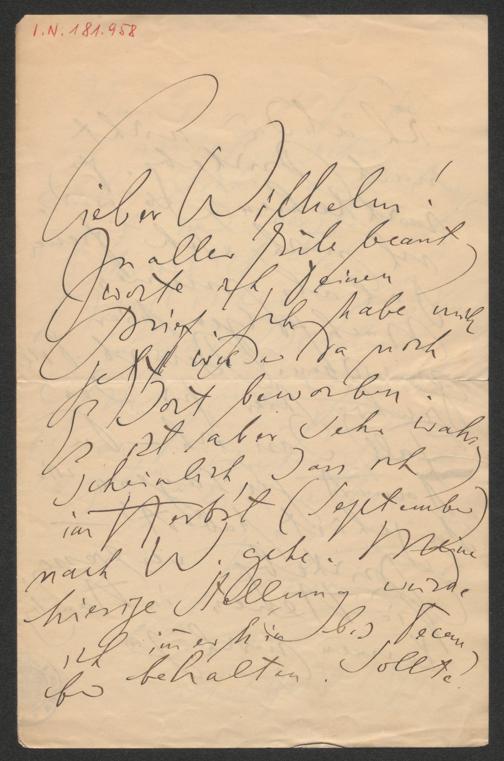 I.N. 181.958
Lieber Wilhelm!
In aller Eile beant
worte ich Deinen
Brief. Ich habe mich
jetzt wieder da noch
dort beworben.
Es ist aber sehr wahr
scheinlich, dass ich
im Herbst (September)
nach W. gehe. Meine
hiesige Stellung würde
ich immerhin bis Decem
ber behalten. Sollte